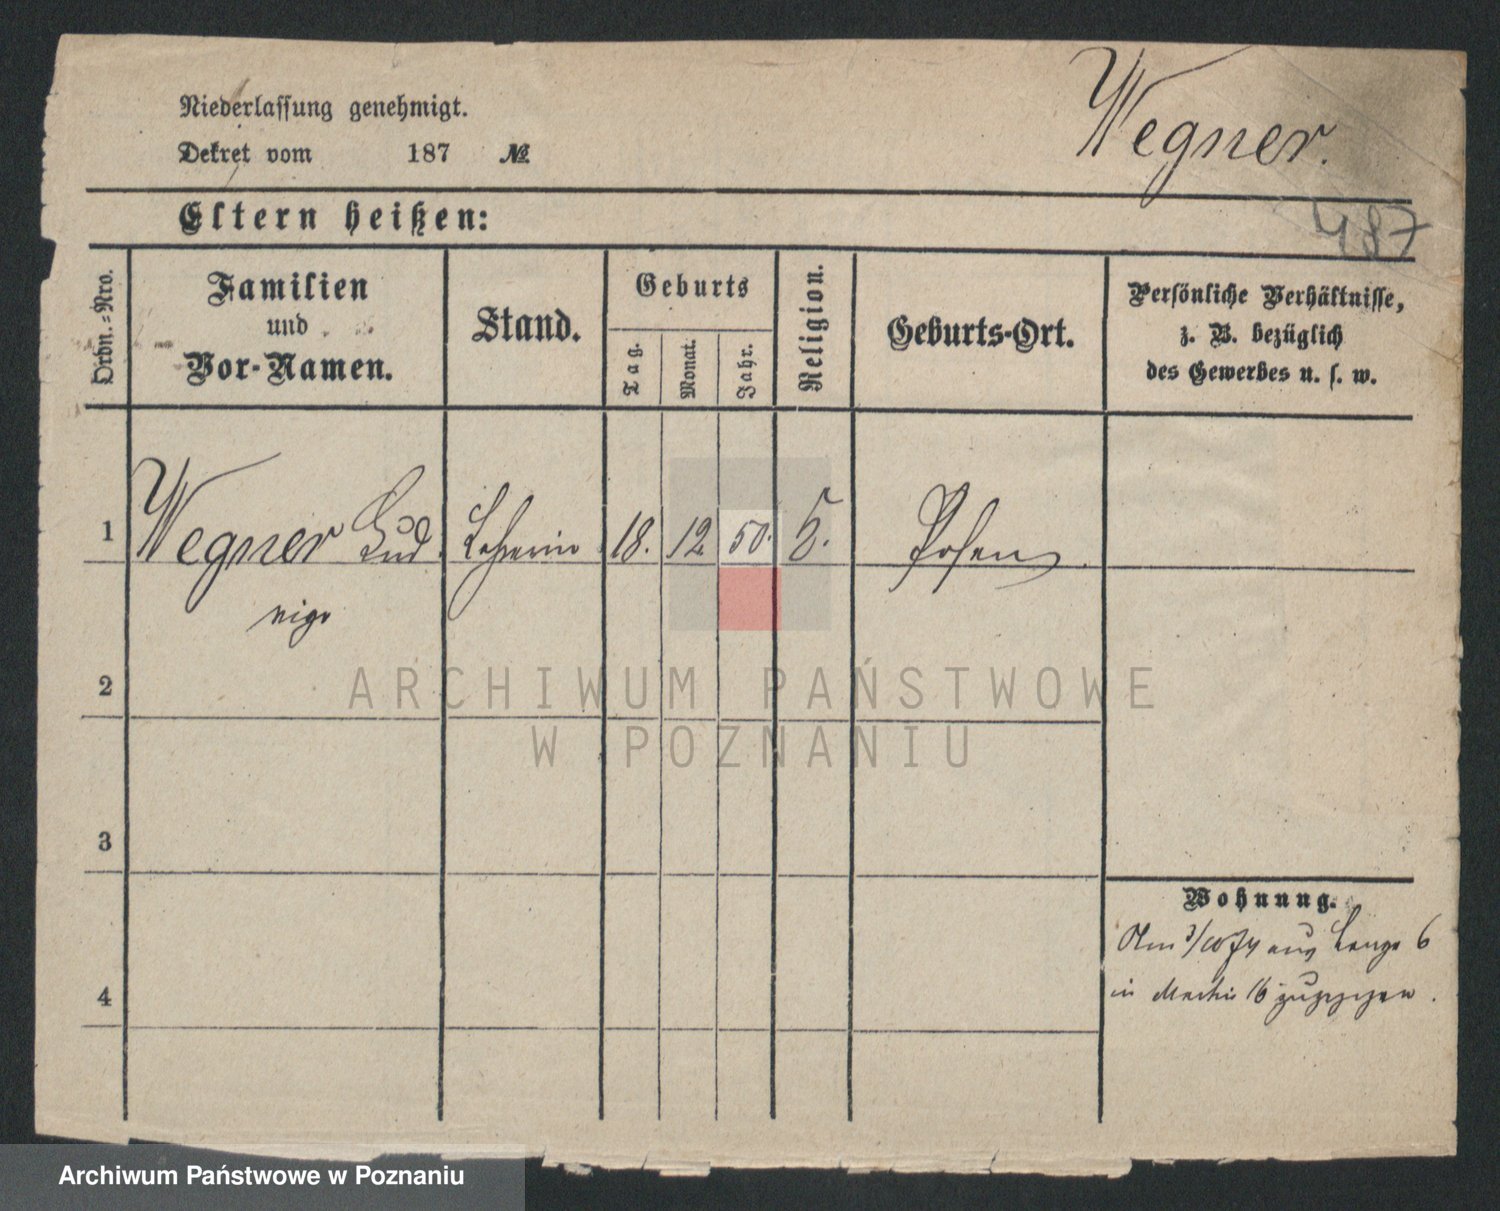 Niederlassung genehmigt.
Dekret vom 187 №
Wegner.
487
Eltern heißen:
Ordn.-Nro.
Familien
und
Vor-Namen.
Stand.
Geburts
Tag.
Monat.
Jahr.
Religion.
Geburts-Ort.
Persönliche Verhältnisse,
z. B. bezüglich
des Gewerbes u. s. w.
1 Wegner Lud Lehrerin 18. 12 50. Posen
2
3
4
ARCHIWUM PAŃSTWOWE
W POZNANIU
Wohnung.
Am aus Lange 6
in Martin 16 zugezogen.
Archiwum Państwowe w Poznaniu